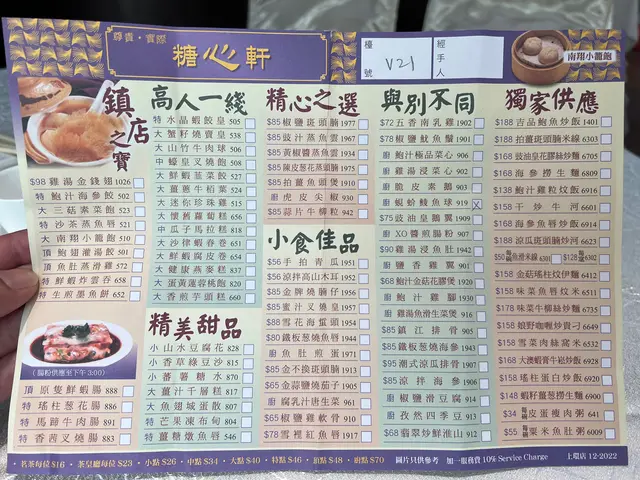 尊貴·實際
糖心軒
檯號 V21
經手人
南翔小籠飽
鎮店之寶
$98 雞湯金錢翅 1026
特 鮑汁海參餃 502
大 三菇素菜飽 523
特 沙茶蒸魚唇 521
大 南翔小籠飽 510
頂 鮑翅灌湯餃 501
頂 魚肚蒸滑雞 572
特 鮮蝦炸雲吞 658
特 生煎墨魚餅 652
(腸粉供應至下午3:00)
頂 原隻鮮蝦腸 888
特 瑤柱葱花腸 886
特 馬蹄牛肉腸 891
特 香茜叉燒腸 883
高人一綫
特 水晶蝦餃皇 505
大 蟹籽燒賣皇 538
大 山竹牛肉球 508
中 蠔皇叉燒飽 508
大 鮮蝦韮菜餃 527
大 薑蔥牛栢葉 524
大 迷你珍珠雞 515
大 懷舊蘿蔔糕 656
中 瓜子馬拉糕 518
大 沙律蝦春卷 651
大 鮮蝦腐皮卷 654
大 健康燕麥糕 837
大 蛋黃蓮蓉桃飽 820
大 香煎芋頭糕 660
精美甜品
小 山水豆腐花 828
小 香草綠豆沙 815
小 蕃薯糖水 870
大 薑汁千層糕 817
大 魚翅城蛋散 807
特 芒果凍布甸 804
特 薑糖燉魚唇 546
精心之選
$85 椒鹽斑頭腩 1977
$85 豉汁蒸魚雲 1971
$85 黃椒蒸魚雲 934
$85 陳皮葱蒸斑腩 1975
$85 拍薑魚頭煲 1979
廚 虎皮尖椒 930
$85 蒜片牛柳粒 942
小食佳品
$56 手拍青瓜 1951
$56 涼拌高山木耳 1952
$85 金牌燒腩仔 1956
$85 蜜汁叉燒皇 1957
$88 雪花海蜇頭 1944
$80 鐵板葱燒魚唇 1990
廚 魚肚煎蛋 1971
$85 金不換斑頭腩 1991
$65 金蒜鹽燒茄子 1905
廚 腐乳汁唐生菜 1961
$65 椒鹽雞軟骨 910
$78 雪裡紅魚唇 1917
與別不同
$72 五香南乳雞 1902
$78 椒鹽魷魚鬚 1901
廚 鮑汁極品菜心 906
廚 雞湯浸菜心 902
廚 脆皮素鵝 903
廚 蜆蚧鯪魚球 919
$75 豉油皇鵝翼 1909
廚 XO醬煎腸粉 907
$90 雞湯浸魚肚 1942
廚 鹽香雞翼 901
$68 鮑汁金菇花膠筒 1920
廚 鮑汁雞腳 1930
廚 雞油魚滑生菜煲 916
$85 鎮江排骨 905
$95 潮式涼瓜排骨 1908
$85 涼拌海參 1906
$85 鐵板海鮮豆腐 1963
廚 椒鹽滑豆腐 914
廚 孜然四季豆 913
$68 翡翠炒鮮淮山 912
獨家供應
$188 吉品鮑魚炒飯 1401
$188 拍薑斑頭腩米線 6303
$168 豉油皇花膠絲炒麵 6705
$158 海參撈生麵 6809
$138 鮑汁雞粒炆飯 6916
$158 干炒牛河 6601
$168 海參魚唇炒飯 6914
$188 涼瓜斑頭腩炒河 6623
$158 金菇瑤柱炆伊麵 6412
$158 味菜魚唇炆米 6511
$178 味菜牛柳絲炒河 6735
$158 娘野咖喱炒貴刁 6649
$158 雪菜肉絲窩米 6532
$168 大澳蝦膏牛崧炒飯 6928
$158 瑤柱蛋白炒飯 6920
$148 蝦籽薑葱撈生麵 6900
$34 每碗 皮蛋瘦肉粥 641
$55 每碗 粟米魚肚粥 6009
·茗茶每位$16·茶皇廳每位$23·小點$26·中點$34·大點$40·特點$46·頂點$48·廚點$70
圖片只供參考 加一服務費 10% Service Charge
上環店 12-2022